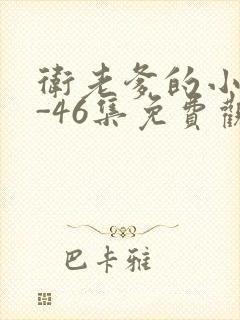 衛老爹的小
-46集免費觀
巴卡雅